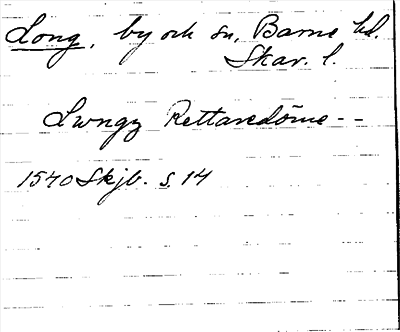 Long, by och sn, Barne hd.
Skar. l.
Lwngz Rettaredöme --
1540 Skjb. s. 14